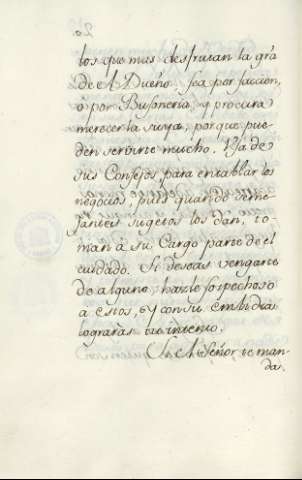 20
los que mas desfrutan la gra
de el Dueño. sea por faccion,
o por Bufoneria, y procura
merecer la suya, porque pue-
den servirte mucho. Usa de
sus Consejos para entablar los
negocios, pues quando seme-
jantes sugetos los dan, to-
man à su Cargo parte de el
cuidado. Si deseas vengarte
de alguno hazle sospechoso
a estos, y con su embidia
lograràs tu intento.
Si el Señor te man-
da.